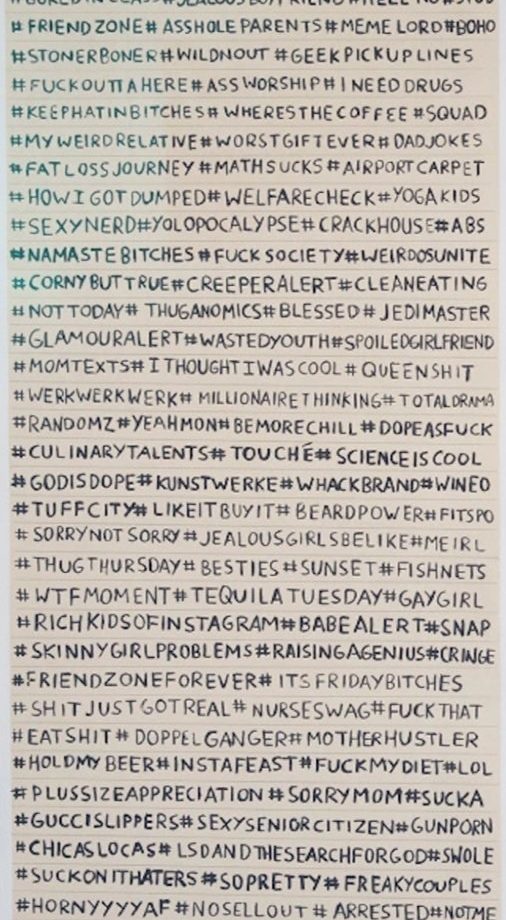 # FRIENDZONE# ASSHOLEPARENTS#MEME LORD#BOHO
#STONERBONER#WILDNOUT #GEEKPICKUPLINES
#FUCKOUTTAHERE#ASSWORSHIP#INEEDDRUGS
#KEEPHATINBITCHES# WHERESTHECOFFEE #SQUAD
#MYWEIRDRELATIVE#WORSTGIFTEVER# DADJOKES
#FATLOSSJOURNEY #MATHSUCKS# AIRPORTCARPET
#HOWIGOTDUMPED# WELFARECHECK#YOGAKIDS
#SEXYNERD#YOLOPOCALYPSE# CRACKHOUSE#ABS
#NAMASTEBITCHES #FUCKSOCIETY#WEIRDOSUNITE
#CORNYBUTTRUE#CREEPERALERT#CLEANEATING
#NOTTODAY# THUGANOMICS# BLESSED# JEDIMASTER
#GLAMOURALERT#WASTEDYOUTH#SPOILEDGIRLFRIEND
#MOMTEXTS# ITHOUGHTIWASCOOL# QUEENSHIT
#WERKWERKWERK# MILLIONAIRETHINKING#TOTALDRAMA
#RANDOMZ#YEAHMON#BEMORECHILL# DOPEASFUCK
#CULINARYTALENTS# TOUCHÉ# SCIENCEISCOOL
#GODISDOPE#KUNSTWERKE#WHACKBRAND#WINEO
#TUFFCITY# LIKEITBUYIT# BEARDPOWER#FITSPO
# SORRYNOTSORRY #JEALOUSGIRLSBELIKE#MEIRL
#THUGTHURSDAY# BESTIES#SUNSET#FISHNETS
# WTFMOMENT#TEQUILATUESDAY#GAYGIRL
#RICHKIDSOFINSTAGRAM#BABEALERT#SNAP
#SKINNYGIRLPROBLEMS#RAISINGAGENIUS#CRINGE
#FRIENDZONEFOREVER# ITSFRIDAYBITCHES
#SHITJUSTGOTREAL# NURSESWAG#FUCKTHAT
#EATSHIT# DOPPELGANGER# MOTHERHUSTLER
#HOLDMYBEER#INSTAFEAST#FUCKMYDIET#LOL
#PLUSSIZEAPPRECIATION #SORRYMOM#SUCKA
#GUCCISLIPPERS#SEXYSENIORCITIZEN#GUNPORN
#CHICASLOCAS# LSDANDTHESEARCHFORGOD#SWOLE
#SUCKONITHATERS#SOPRETTY# FREAKYCOUPLES
#HORNYYYYAF #NOSELLOUT # ARRESTED#NOTME